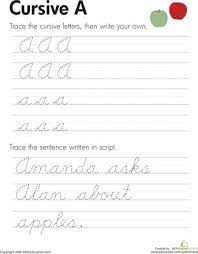 Cursive A
Trace the cursive letters, then write your own.
A A A
A A A
a a a
a a a
Trace the sentence written in script.
Amanda asks
Alan about
apples.